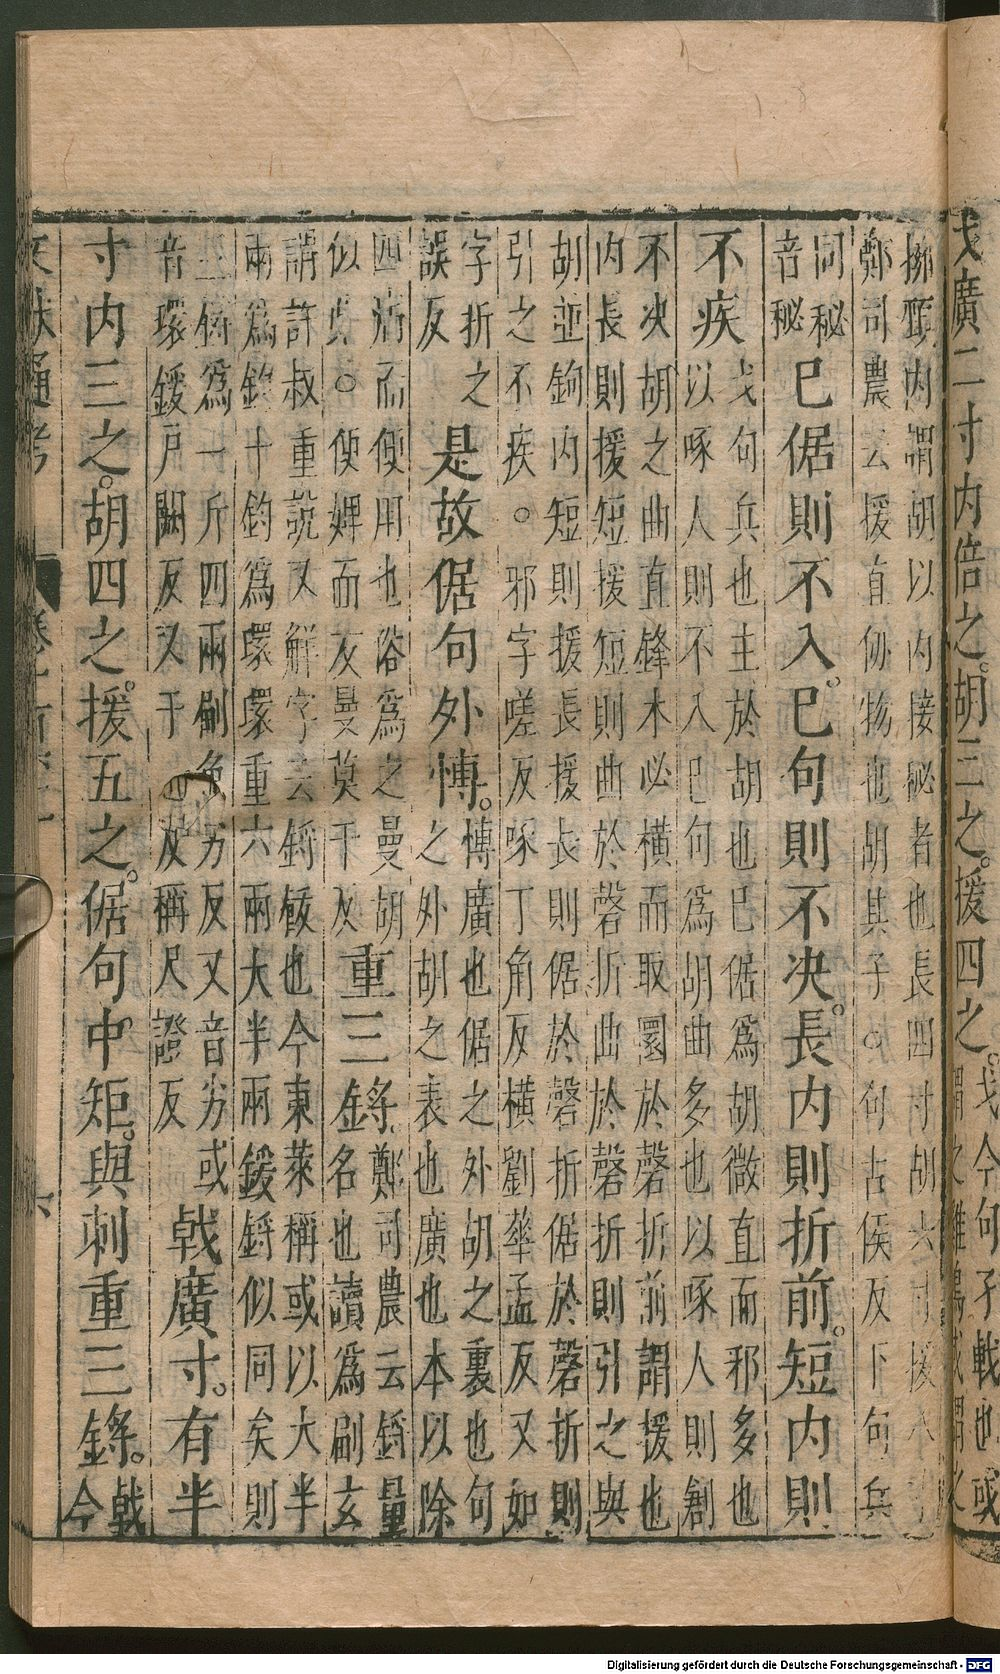 戈廣二寸内倍之。胡三之。援四之。戈今句孑戟也或
謂之雞鳴或謂之
擁頸内謂胡以内接秘者也長四寸胡六寸援八寸
鄭司農云援直刃物也胡其孑。句古侯反下句兵
同秘
音秘
已倨則不入。已句則不决。長内則折前。短内則
不疾
戈句兵也主於胡也已倨爲胡微直而邪多也
以啄人則不入已句爲胡曲多也以啄人則創
不决胡之曲直鋒木必横而取圜於磬折前謂援也
内長則援短援短則曲於磬折曲於磬折則引之與
胡並鉤内短則援長援長則倨於磬折倨於磬折則
引之不疾。邪字嗟反啄丁角反横劉華孟反又如
字折之
誤反
是故倨句外愽。
愽廣也倨之外胡之裏也句
之外胡之表也廣也本以除
四病而便用也俗爲之曼胡
似此。便婢面反曼莫干反
重三鋝
鄭司農云鋝量
名也讀爲刷玄
謂許叔重説文解字云鋝鍰也今東萊稱或以大半
兩爲鈞十鈞爲環環重六兩大半兩鍰鋝似同矣則
三鋝爲一斤四兩刷色劣反又音劣或
音環鍰戸關反又于反稱尺證反
戟廣寸。有半
寸内三之。胡四之。援五之。倨句中矩。與刺重三鋝。
戟
今
文獻通考
Digitalisierung gefördert durch die Deutsche Forschungsgemeinschaft - DFG